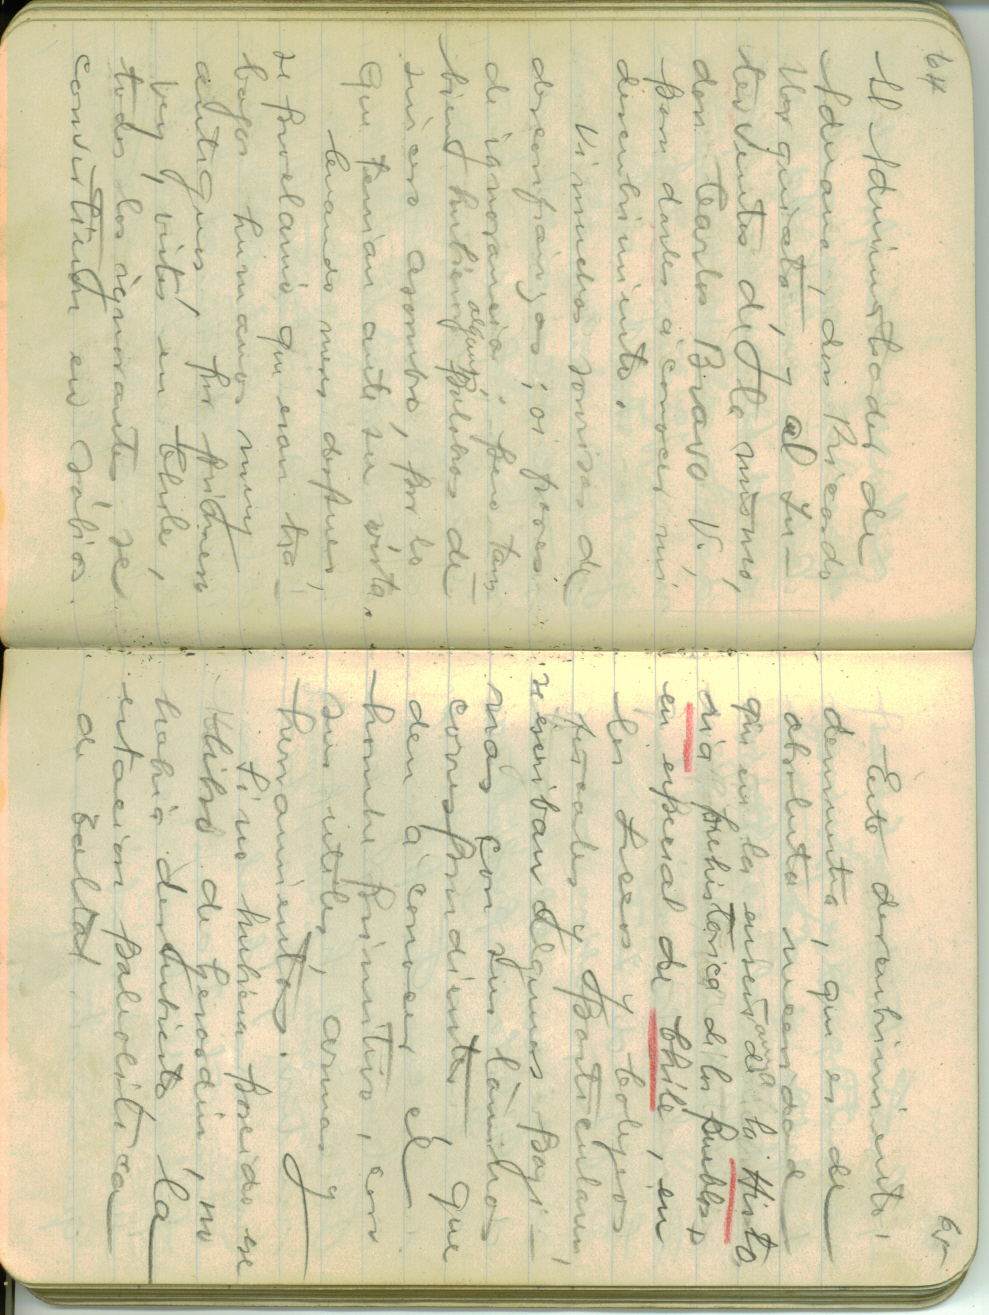 64
el Administrador de
Aduana, don Ricardo
Norguiato, y al In-
tendente de la misma,
don Carlos Bravo V.,
para darles a conocer mi
descubrimiento.
Vi muchas sonrisas de
desconfianzas, o por ser
de ignorancia; pero tam
bien hubieron algunas palabras de
sincero asombro, por lo
que tenian ante su vista.
Cuando meses despues,
se proclamó que eran tra-
bajos humanos muy
antiguos, por primera
vez, vistos en Chile,
todos los ignorantes se
convirtieron en sábios.
65
Este descubrimiento,
demuestra, que es de
absoluta necesidad
que en la enseñanza de la Histo
ria prehistórica de los pueblos,
en especial de Chile, en
los Liceos y Colegios
fiscales y particulares,
se escriban algunas pági-
nas con sus láminas
correspondientes, que
den á conocer el
hombre primitivo, con
sus utiles, armas y
herramientas.
Si no hubiera poseido ese
libro de Geografia, no
habria descubierto, la
estacion paleolítica
de Taltal.